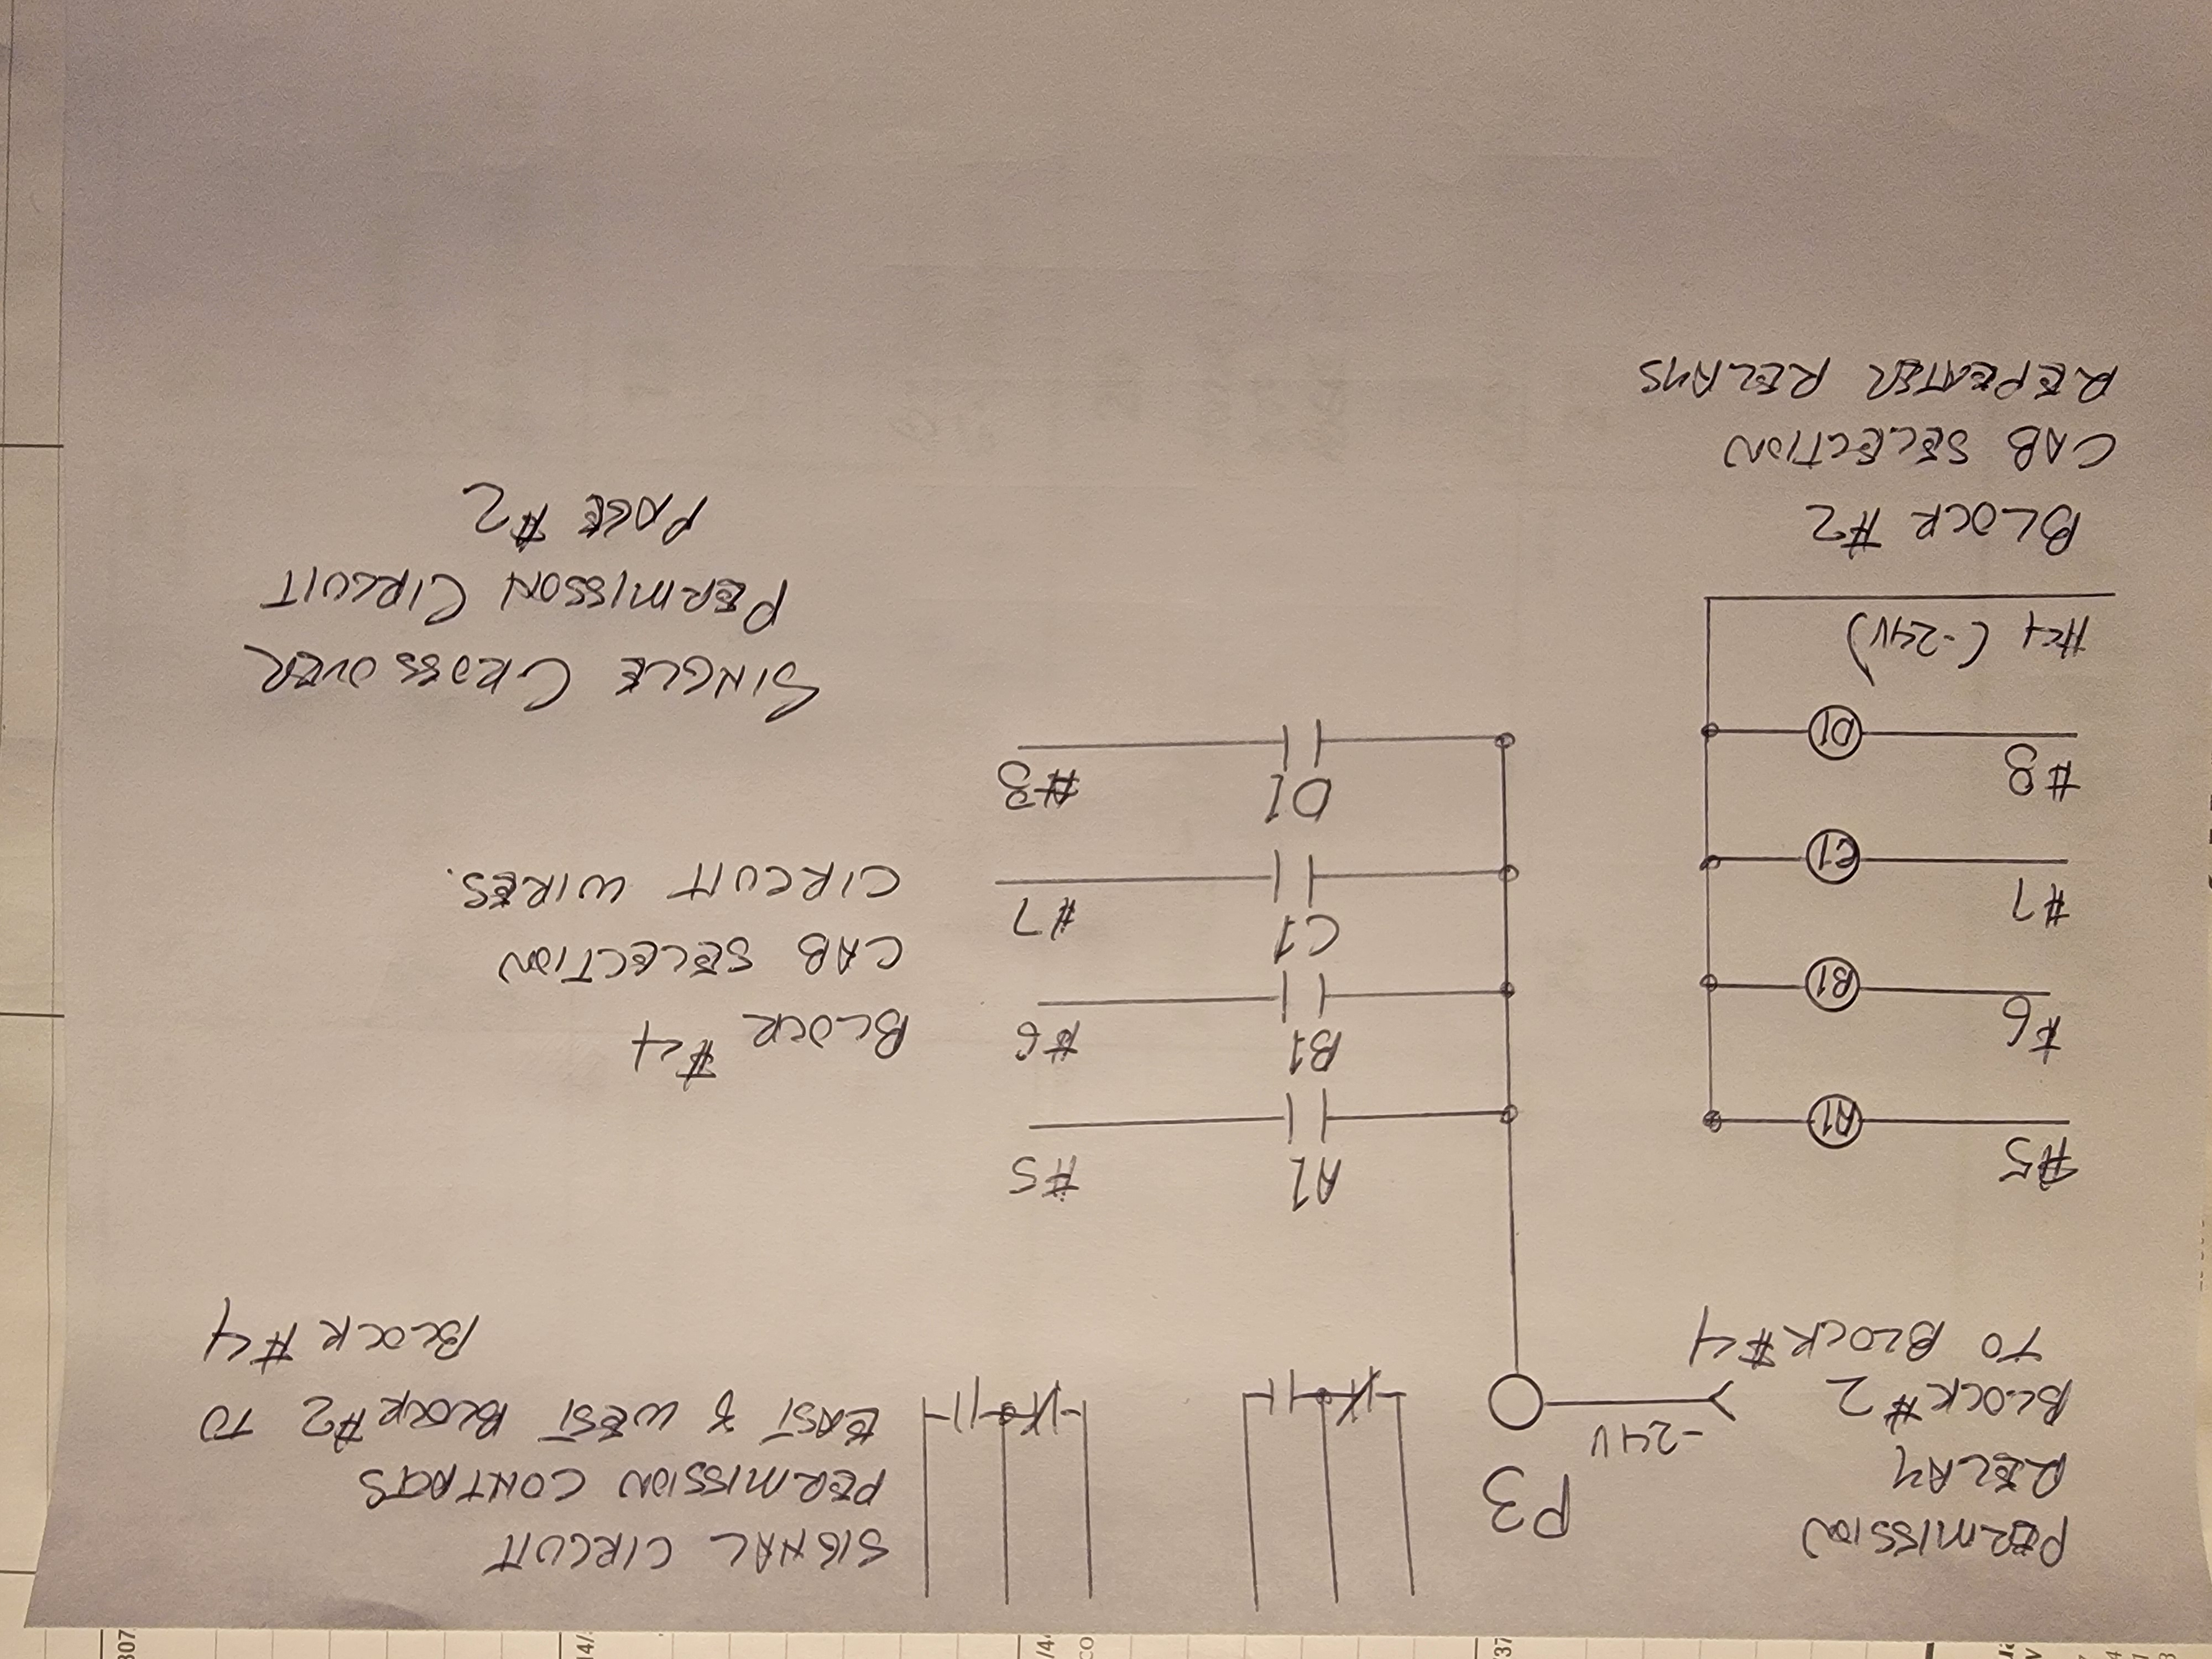 PERMISSION
RELAY
BLOCK #2
TO BLOCK #4
P3
-24V
SIGNAL CIRCUIT
PERMISSION CONTACTS
EAST & WEST BLOCK #2 TO
BLOCK #4
#5
A1
#6
B1
#7
C1
#8
D1
#4 (-24V)
BLOCK #2
CAB SELECTION
REPEATER RELAYS
A1
#5
B1
#6
C1
#7
D1
#8
BLOCK #4
CAB SELECTION
CIRCUIT WIRES.
SINGLE CROSSOVER
PERMISSON CIRCUIT
PAGE #2
307
14/
/44
co
/37